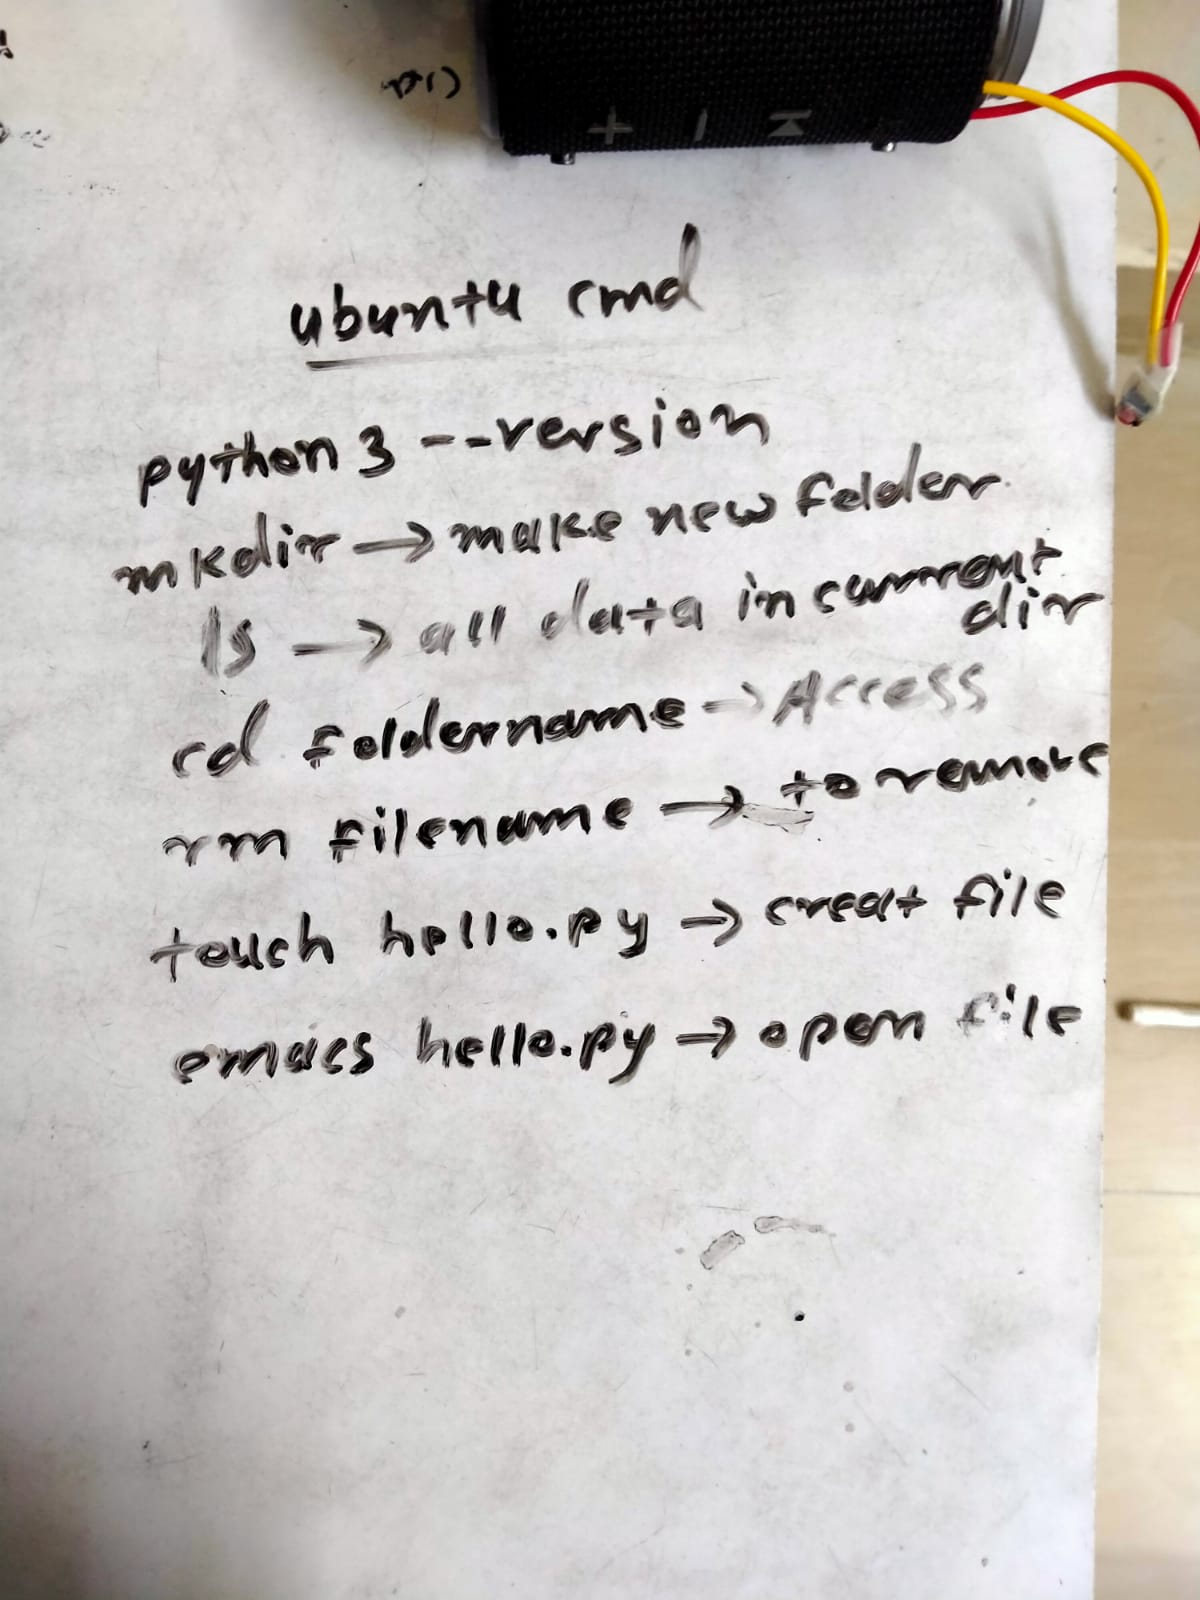 ubuntu cmd
python3 --version
mkdir → make new folder
ls → all data in current
dir
cd foldername → Access
rm filename → to remove
touch hello.py → creat file
emacs hello.py → open file